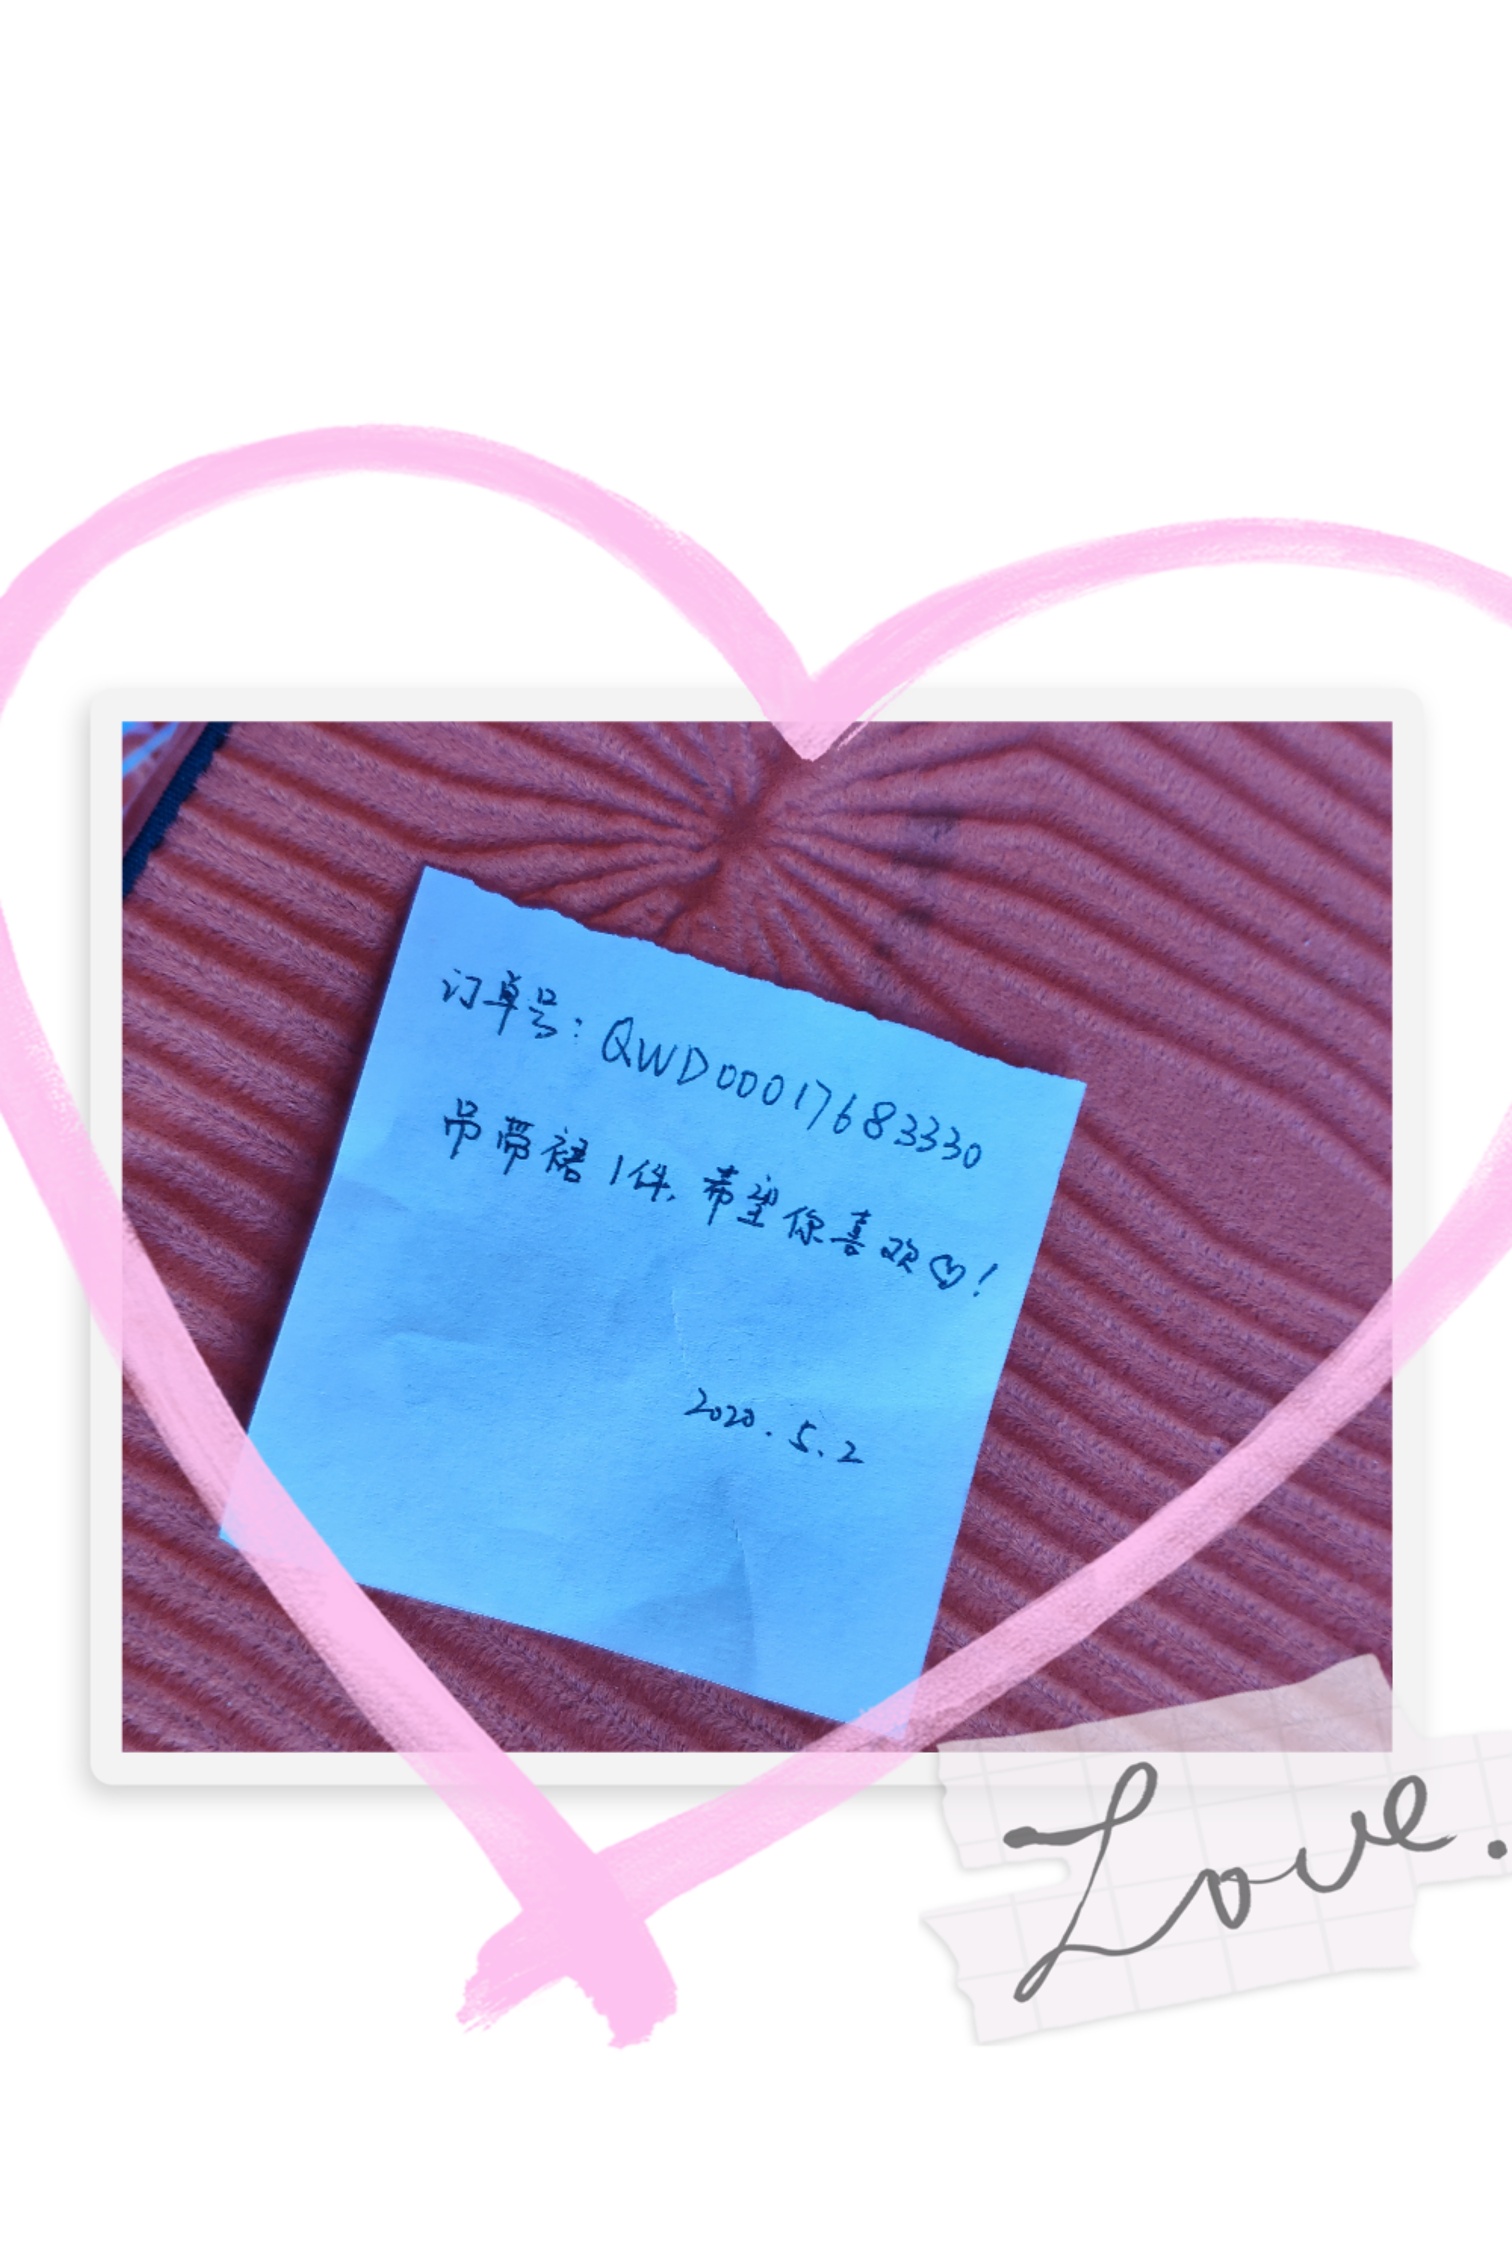 订单号：QWD00017683330
吊带裙1件，希望你喜欢♡！
2020.5.2
Love.